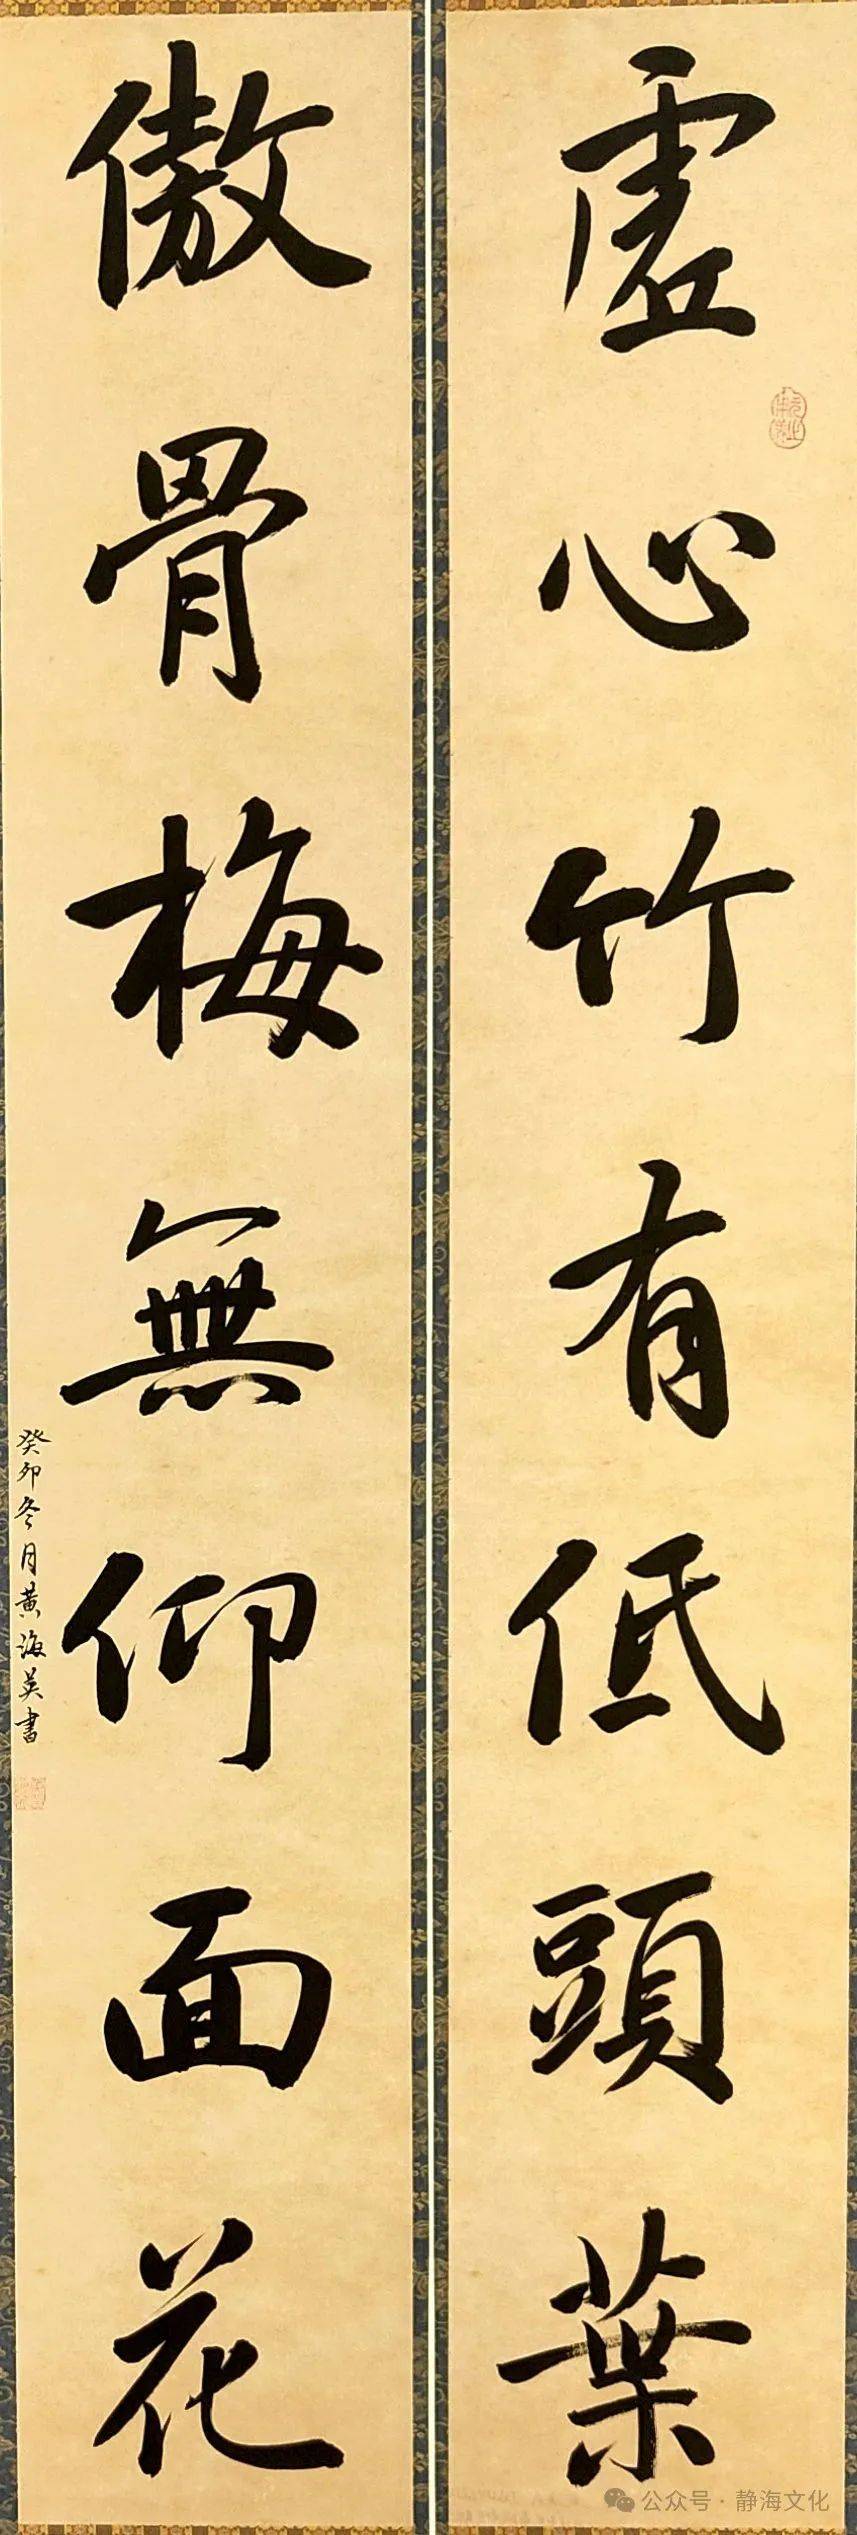 虛心竹有低頭葉
傲骨梅無仰面花
癸卯冬月黃海英書
公众号·静海文化